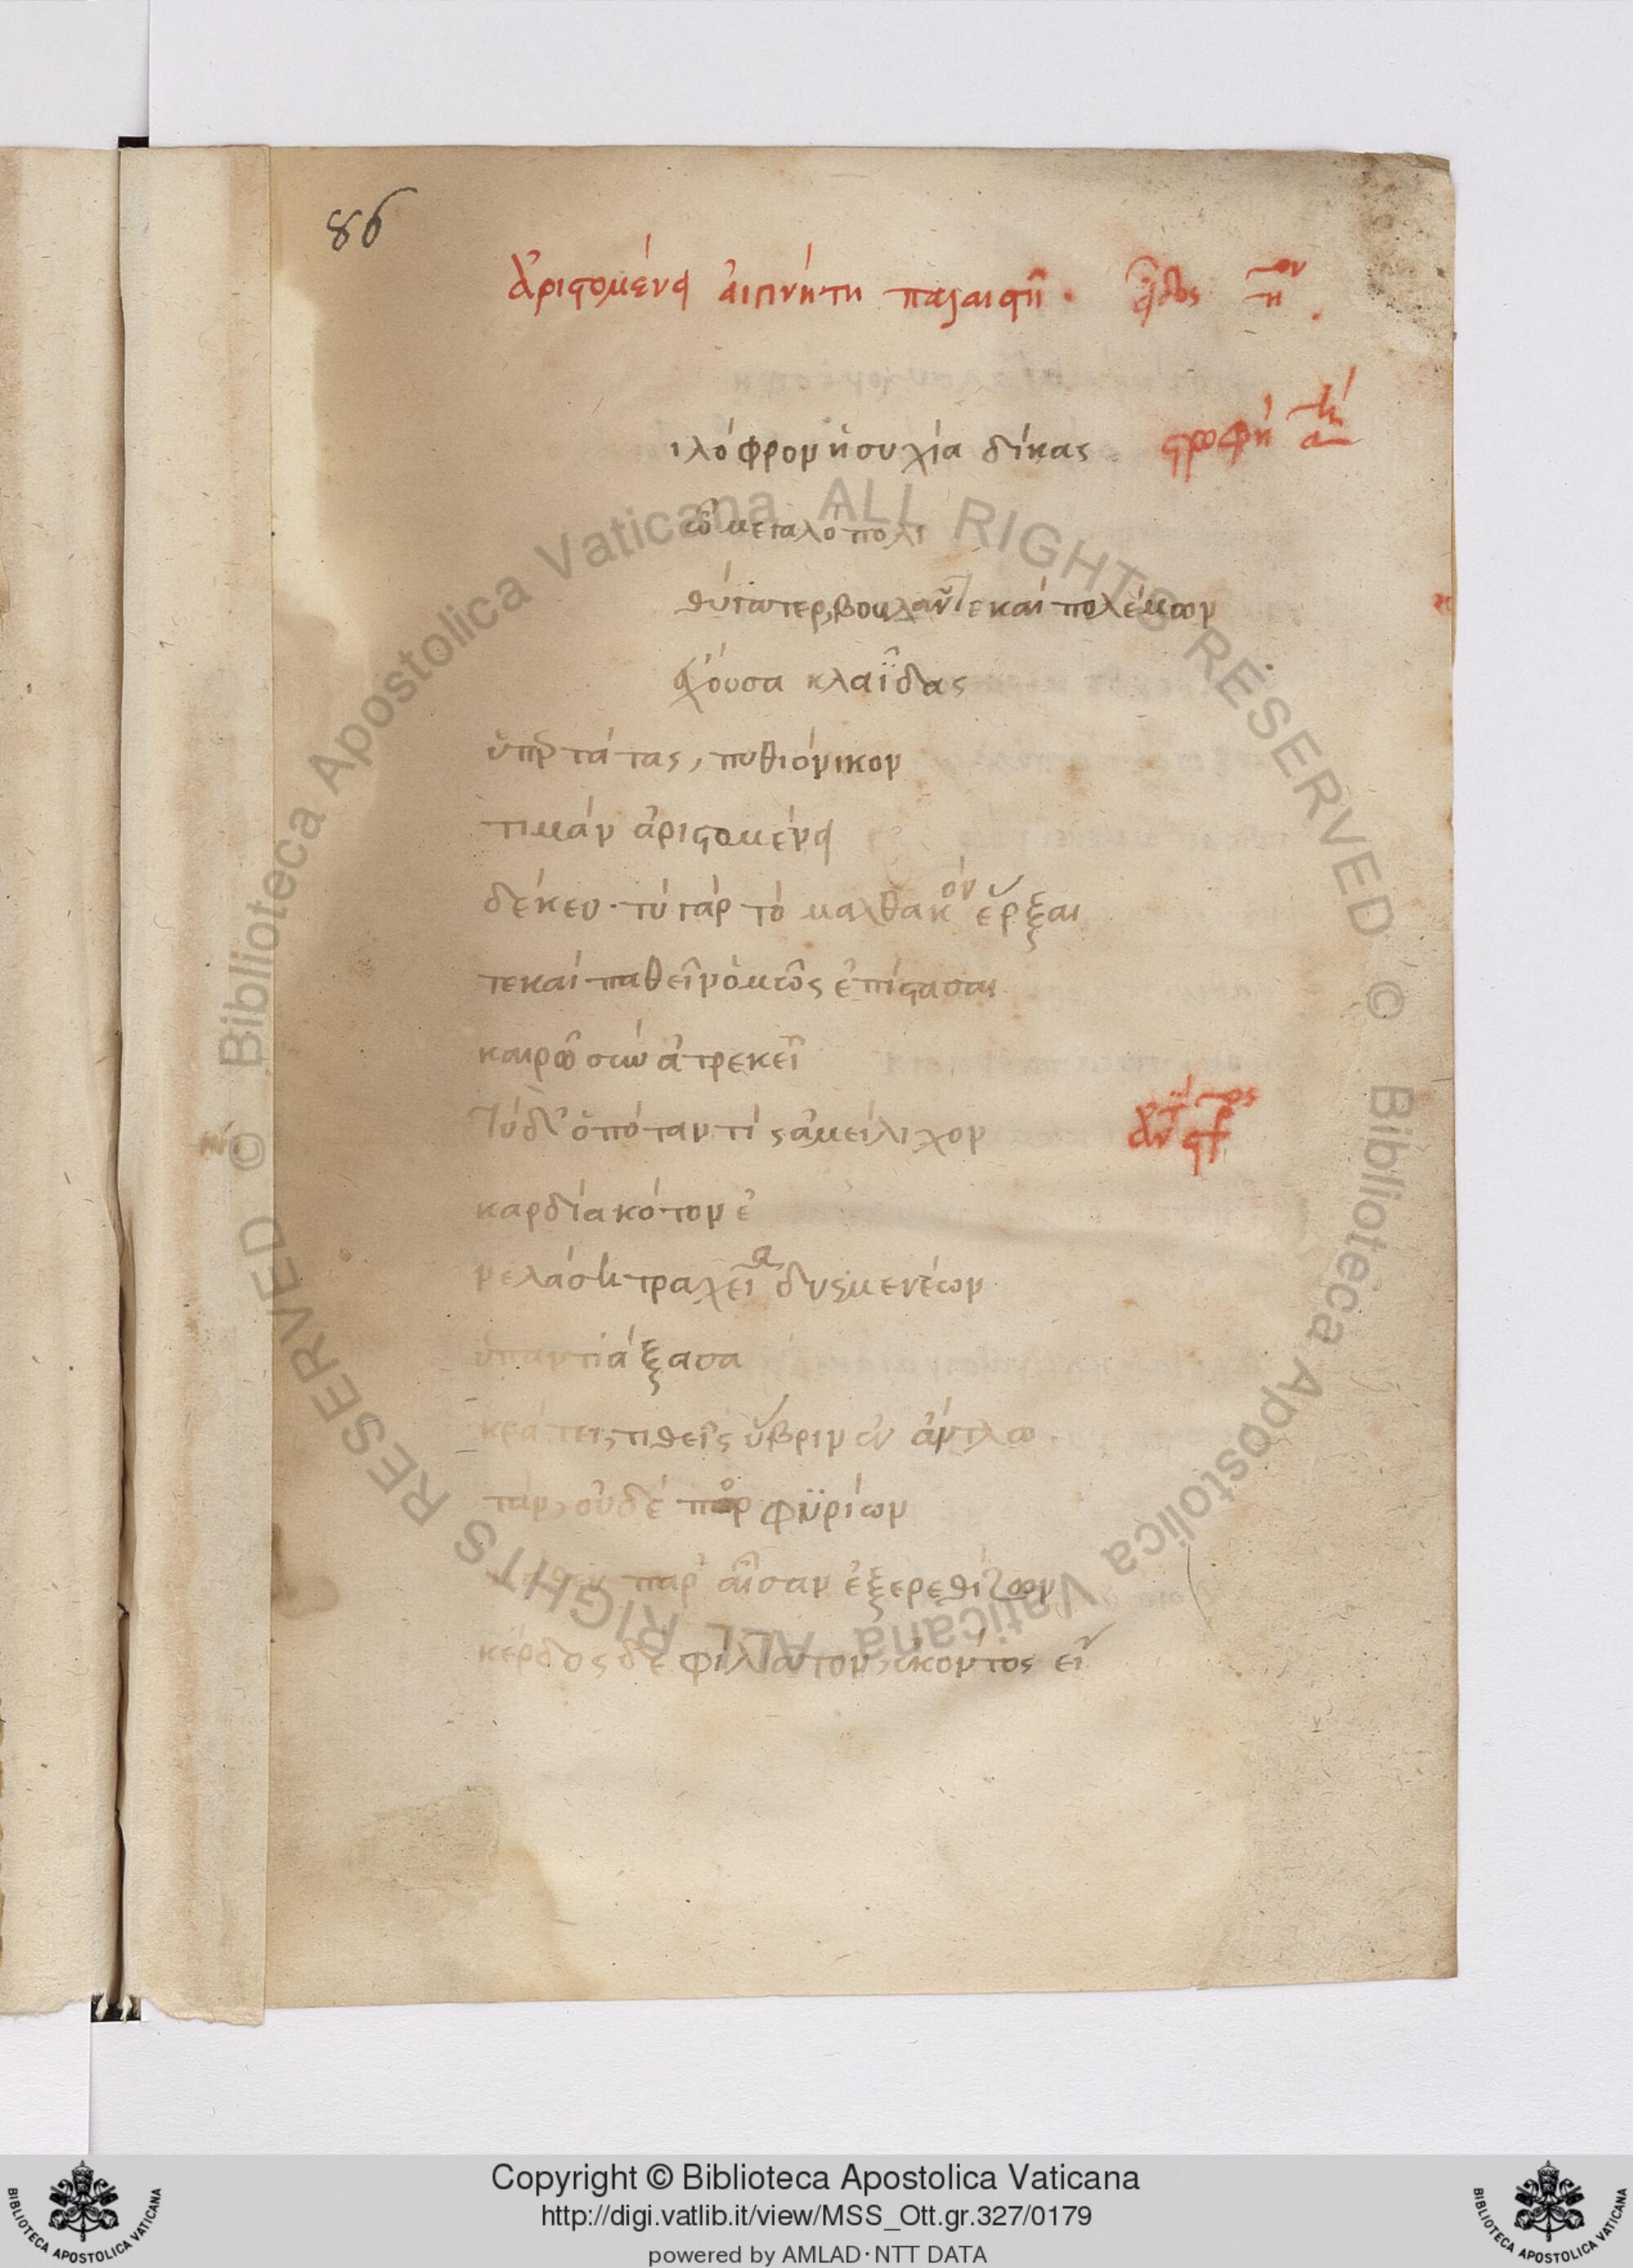 86
ἀριστομένει αἰγινήτη παλαιστῆ. εἶδος η^ον.
ιλόφρον ἡσυχία δίκας στροφὴ
ὦ μεγαλόπολι
θύγατερ, βουλᾶν τε καὶ πολέμων
ἔχουσα κλαΐδας
ὑπερτάτας, πυθιόνικον
τιμὰν ἀριστομένει
δέκευ· τὺ γὰρ τὸ μαλθακὸν ἔρξαι
τε καὶ παθεῖν ὁμῶς ἐπίστασαι
καιρῶ σὺν ἀτρεκεῖ
τὺ δ' ὁπόταν τίς ἀμείλιχον
καρδία κότον ἐ
νελάση· τραχεῖα δυσμενέων
ὑπαντιάξασα
κράτει, τιθεῖς ὕβριν ἐν ἄντλω
τὰν, οὐδὲ πορφυρίων
παρ' αἶσαν ἐξερεθίζων
κέρδος δὲ φίλτατον, ἑκόντος εἴ
Copyright © Biblioteca Apostolica Vaticana
http://digi.vatlib.it/view/MSS_Ott.gr.327/0179
powered by AMLAD·NTT DATA
BIBLIOTECA APOSTOLICA VATICANA
BIBLIOTECA APOSTOLICA VATICANA
© Biblioteca Apostolica Vaticana ALL RIGHTS RESERVED © Biblioteca Apostolica Vaticana ALL RIGHTS RESERVED